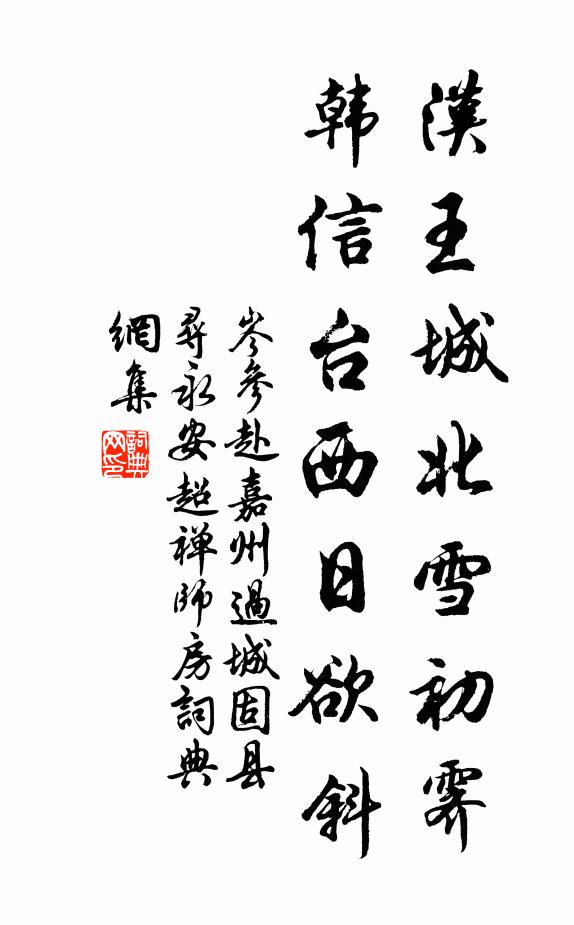 漢王城北雪初霽
韓信台西日欲斜
岑參赴嘉州過城固县
尋永安超禅師房詞典
網集
詞典网印